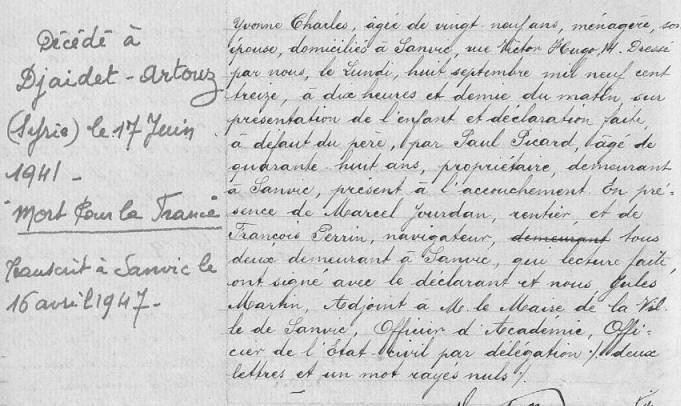 Décédé à
Djaidet-Artouz
(Syrie) le 17 Juin
1941 -
"Mort Pour la France"
Transcrit à Sanvic le
16 avril 1947 -
Yvonne Charles, âgée de vingt neuf ans, ménagère, son
épouse, domiciliés à Sanvic, rue Victor Hugo, 14. Dressé
par nous, le Lundi, huit septembre mil neuf cent
treize, à dix heures et demie du matin, sur
présentation de l'enfant et déclaration faite,
à défaut du père, par Paul Picard, âgé de
quarante huit ans, propriétaire, demeurant
à Sanvic, présent à l'accouchement. En pré-
sence de Marcel Jourdan, rentier, et de
François Perrin, navigateur, demeurant tous
deux demeurant à Sanvic, qui, lecture faite,
ont signé avec le déclarant et nous Jules
Martin, Adjoint à M. le Maire de la Vil-
le de Sanvic, Officier d'Académie, Offi-
cier de l'Etat-civil par délégation ./. deux
lettres et un mot rayés nuls ./.